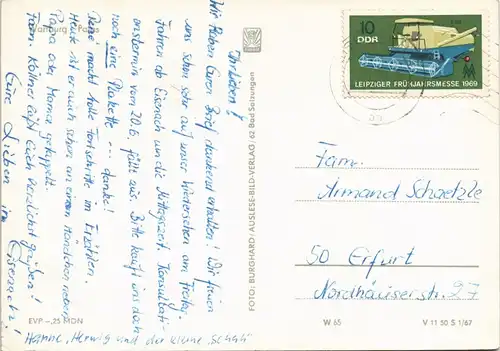 Wartburg / Palas
Ihr Lieben!
Wir haben Euren Brief dankend erhalten! Wir freuen
uns schon sehr auf unser Wiedersehen am Freitag.
Fahren ab Eisenach um die Mittagszeit. Konsultati-
onstermin vom 20.6. fällt aus. Bitte kauft uns doch
noch eine Plakette --- danke!
René macht tolle Fortschritte im Erzählen.
Heute ist er auch schon an einem Händchen neben
Papa oder Mama getippelt.
Fam. Köhler läßt Euch herzlichst grüßen!
Eure Lieben in
Eisenach!
Hanne, Herwig und der kleine "Schatz"
EVP -,25 MDN
FOTO: BURGHARD / AUSLESE-BILD-VERLAG, 62 Bad Salzungen
10
DDR
E 512
LEIPZIGER FRÜHJAHRSMESSE 1969
MM
Fam.
Armand Schaetzle
50 Erfurt
Nordhäuserstr. 27
W 65
V 11 50 S 1/67